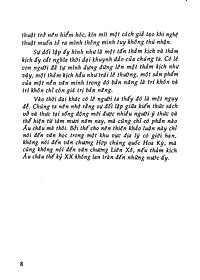 thuật trở nên hiểm hóc, kín mít một cách giả tạo khi nghệ
thuật muốn tỏ ra mình thông minh tuy không thú nhận.
Sự đối lập ấy hình như là một tấn thảm kịch và thảm
kịch ấy cắt nghĩa thời đại khuynh đảo của chúng ta. Có lẽ
con người đã tự mình dựng đứng lên một thảm kịch như
vậy, một thảm kịch hầu như trái lẽ thường, một sản phẩm
của một nền văn minh trong đó bản năng là trí khôn và
trí khôn chỉ còn giá trị bản năng.
Vào thời đại khác có lẽ người ta thấy đó là một nguy
đề. Chúng ta nên nhớ rằng sự đối lập giữa kiến thức sách
vở và thực tại sống động mới được nhiều người ý thức và
thể hiện từ năm mươi năm nay, mà cũng chỉ có phần nào
Âu châu mà thôi. Bởi thế cho nên thiên khảo luận này chỉ
nói đến văn học trong một khu vực địa lý có giới hạn,
không nói đến văn chương Hợp chúng quốc Hoa Kỳ, mà
cũng không nói đến văn chương Liên Xô, nếu thảm kịch
Âu châu thế kỷ XX không lan tràn đến những nước ấy.
8